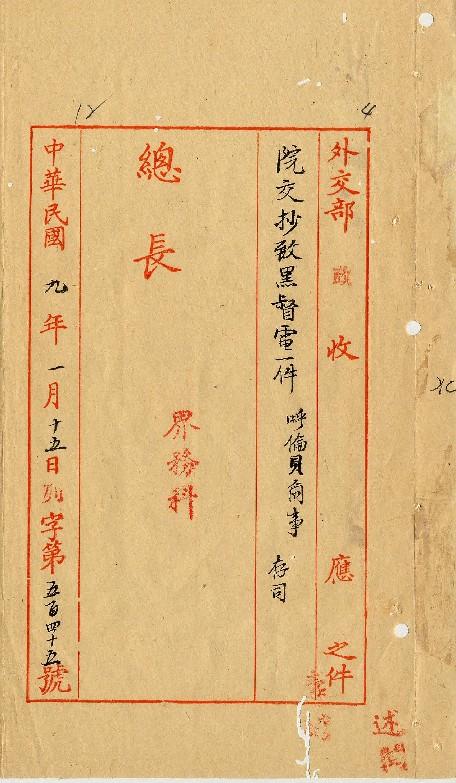 4
外交部 收 應 之件
院交抄致黑督電一件 呼倫貝爾事 存司
總長
界務科
中華民國 九年 一月 十五日 字第 五百四十五號
述